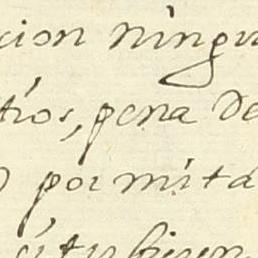 cion ningu
tios, pena de
por mita